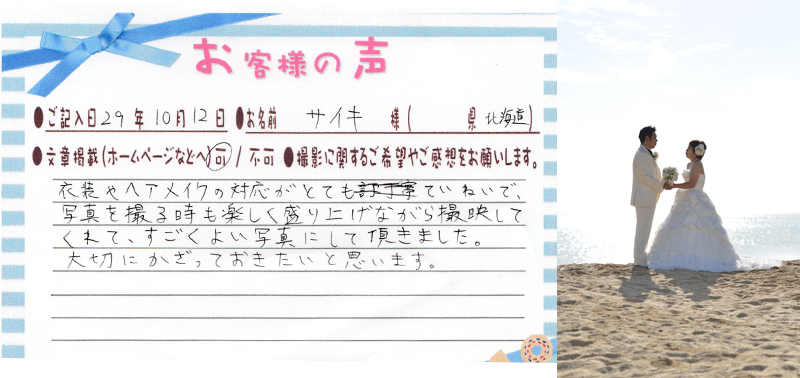 お客様の声
●ご記入日29年10月12日 ●お名前 サイキ 様( 県 北海道)
●文章掲載(ホームページなどへ)可/不可 ●撮影に関するご希望やご感想をお願いします。
衣装やヘアメイクの対応がとてもていねいで、
写真を撮る時も楽しく盛り上げながら撮映して
くれて、すごくよい写真にして頂きました。
大切にかざっておきたいと思います。